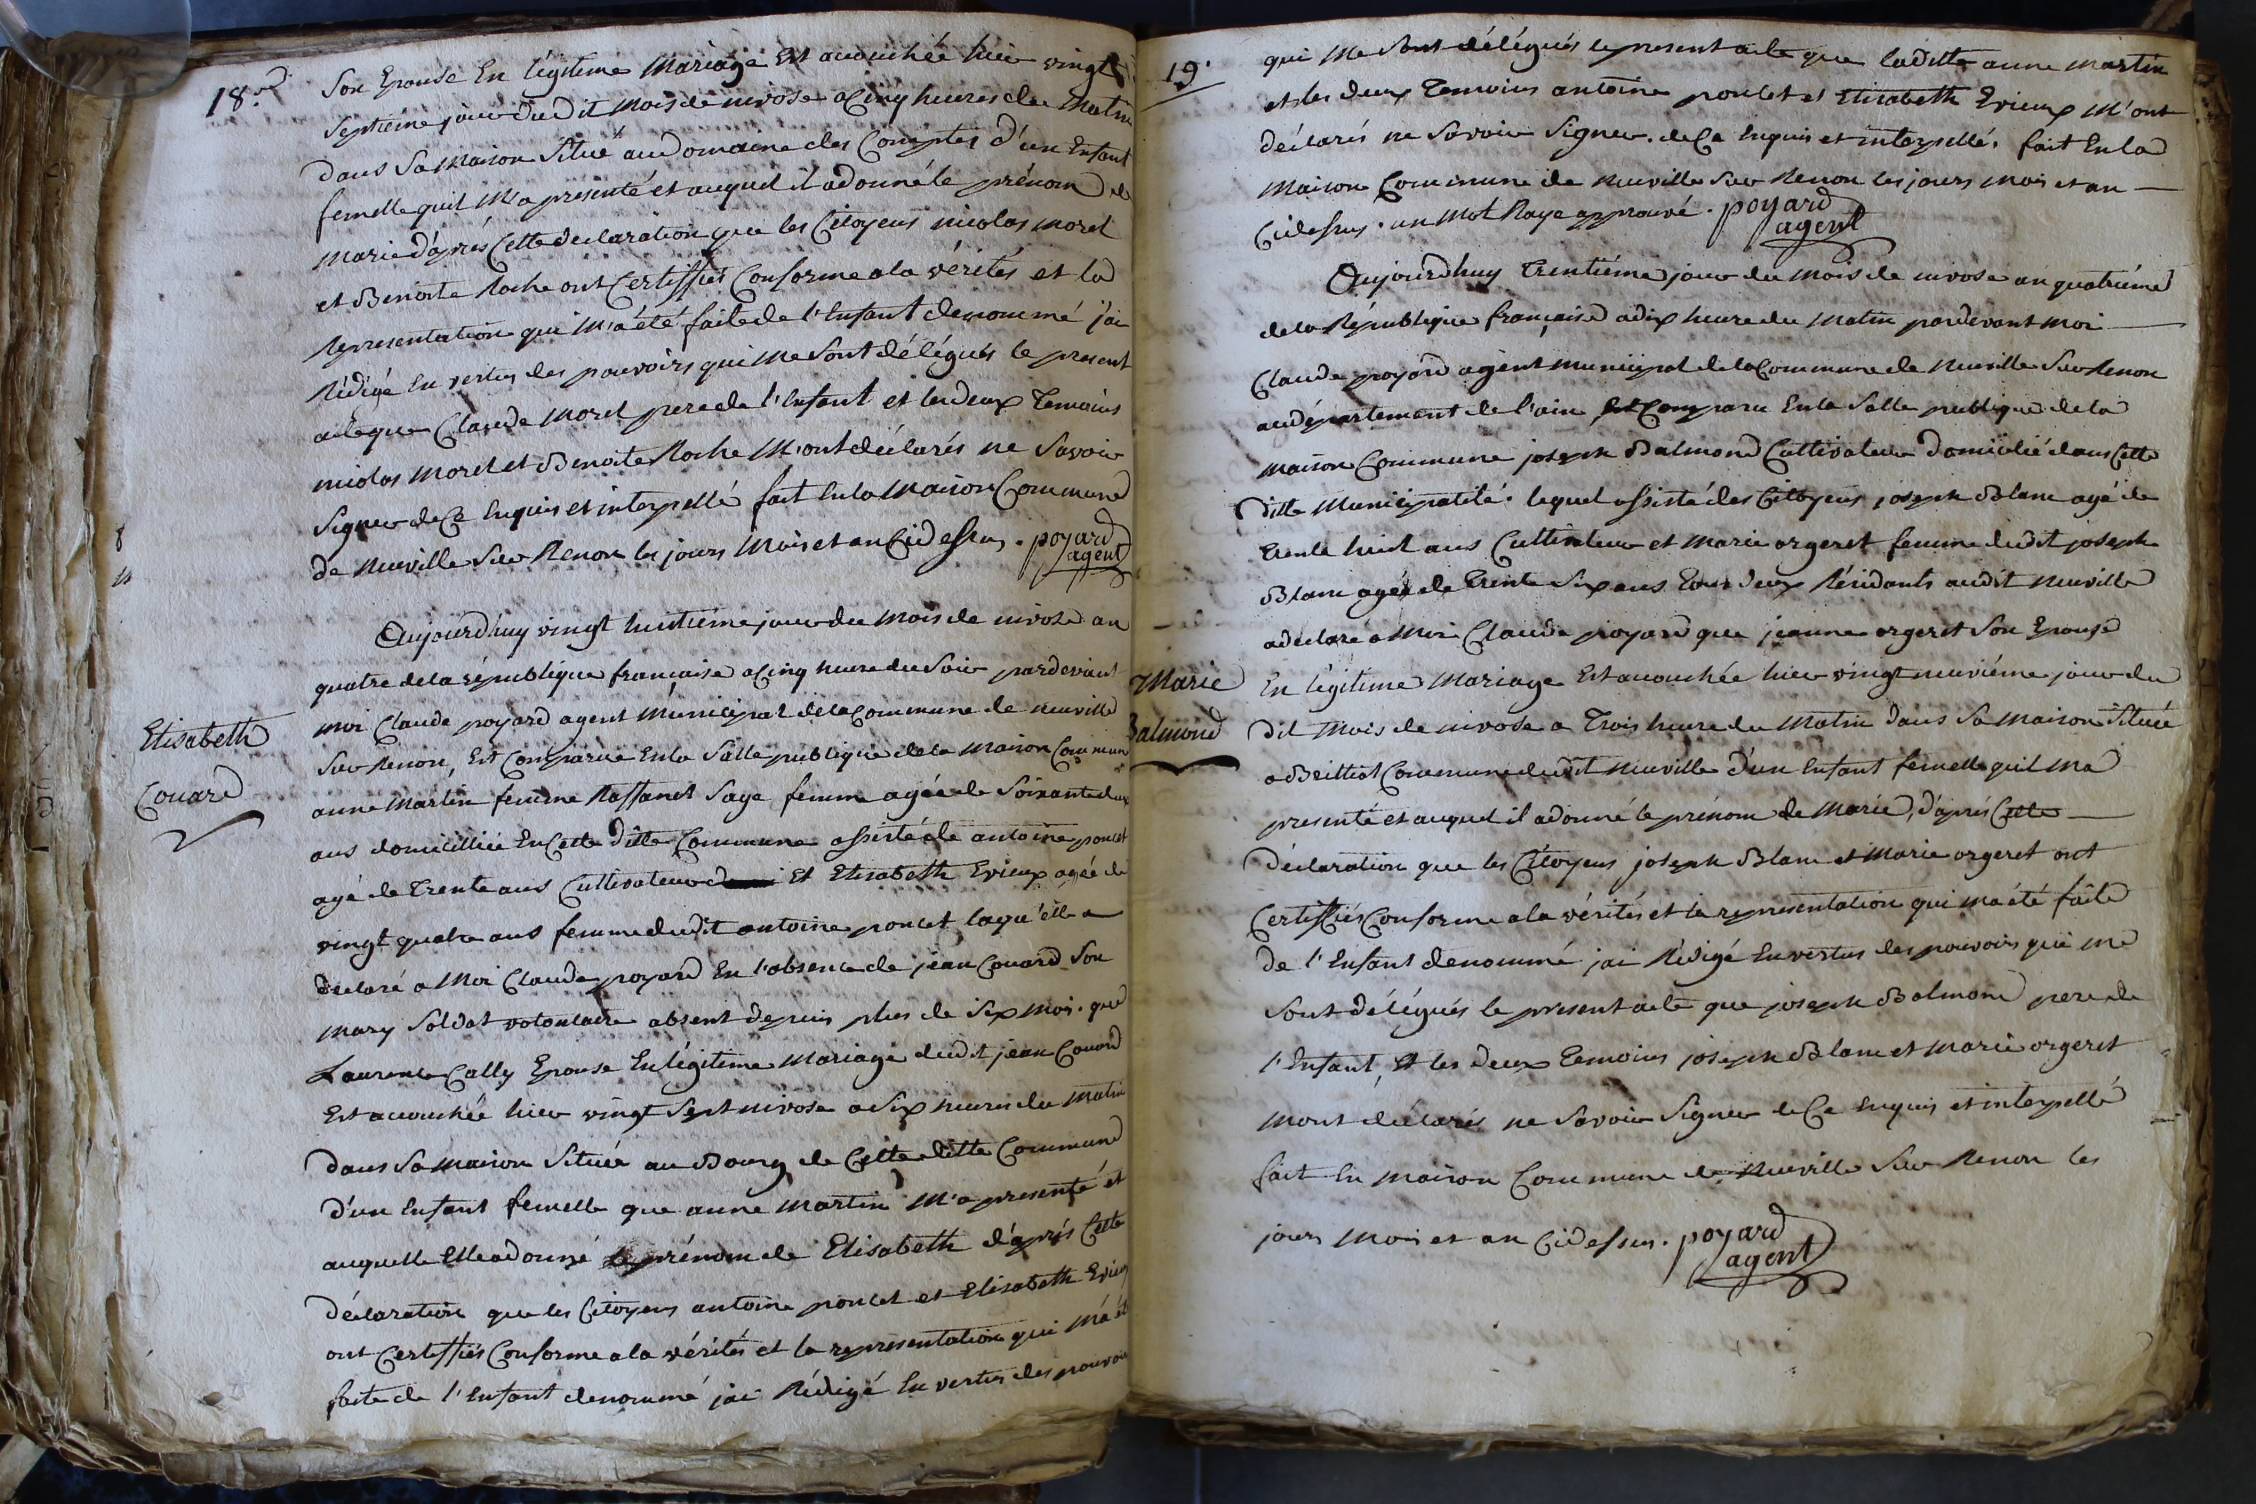 18.
Son Epouse En légitime Mariage Est acouchée hier vingt
Septiéme jour du Dit Mois de nivose a Cinq heures du Matin
dans Sa Maison Situé au Domaine des Comptes d'un Enfant
femelle quil M'a presenté et auquel il adonné le prénom de
Marie d'après Cette declaration que les Citoyens nicolas morel
et Benoite Roche ont Certiffiés Conforme a la vérités et la
Representation qui M'a été faite de l'Enfant denommé j'ai
Rédigé En vertus des pouvoirs qui Me Sont délégués le present
acte que Claude Morel pere de l'Enfant et les deux Temoins
nicolas Morel et Benoite Roche M'ont déclarés ne Savoir
Signer de Ce Enquis et interpellé fait En la Maison Commune
de Neuville Sur Renon les jours Mois et an Cidessus . poyard
agent
Aujourdhuy vingt huitiéme jour du Mois de nivose an
quatre de la république française a Cinq heure du Soir pardevant
Moi Claude poyard agent Municipal de la Commune de neuville
Sur Renon, Est Comparue En la Salle publique de la Maison Commune
Elisabeth
Couard
anne Martin femme Rassanet Sage femme agée de Soixante deux
ans domicilliée En Cette ditte Commune assisté de antoine poncet
agé de Trente ans Cultivateur Et Elisabeth Evieux agée de
vingt quatre ans femme dudit antoine poncet laqu'elle a
déclaré a Moi Claude poyard En l'absence de jean Couard Son
Mary Soldat volontaire absent depuis plus de Six Mois . que
Laurence Cally Epouse En légitime Mariage dudit jean Couard
Est acouchée hier vingt Sept nivose a Six heures du Matin
dans Sa Maison Située au Bourg de Cette ditte Commune
d'un Enfant femelle que anne Martin M'a presenté et
auquelle Elle adonné le prénom de Elisabeth d'après Cette
déclaration que les Citoyens antoine poncet et Elisabeth Evieux
ont Certiffiés Conforme a la vérités et la representation qui M'a été
faite de l'Enfant denommé j'ai Rédigé En vertus des pouvoirs
19.
qui Me Sont délégués le present acte que laditte anne Martin
et les deux Temoins antoine poncet et Elisabeth Evieux M'ont
déclarés ne Savoir Signer . de Ce Enquis et interpellés . fait En la
Maison Commune de Neuville Sur Renon les jours Mois et an
Cidessus . un Mot Raye approuvé . poyard
agent
Aujourdhuy Trentiéme jour du Mois de nivose an quatriéme
de la République française a dix heure du Matin pardevant Moi
Claude poyard agent Municipal de la Commune de Neuville Sur Renon
audépartement de l'ain, Est Comparu En la Salle publique de la
Maison Commune joseph Balmond Cultivateur Domicilié dans Cette
ditte Municipalité . lequel assisté des Citoyens joseph Blanc agé de
Trente huit ans Cultivateur et Marie orgeret femme dudit joseph
Blanc agée de Trente Six ans tous deux Résidants audit Neuville
adeclaré a Moi Claude poyard que jeanne orgeret Son Epouse
Marie
Balmond
En légitime Mariage Est acouchée hier vingt neuviéme jour du
dit Mois de nivose a Trois heure du Matin dans Sa Maison Située
a Beillist Commune dudit Neuville d'un Enfant femelle quil M'a
presenté et auquel il adonné le prénom de Marie, d'après Cette
Déclaration que les Citoyens joseph Blanc et Marie orgeret ont
Certiffiés Conforme a la vérités et la representation qui m'a été faite
de l'Enfant denommé j'ai Rédigé En vertus des pouvoirs qui Me
Sont délégués le present acte que joseph Balmond pere de
l'Enfant, Et les deux Temoins joseph Blanc et Marie orgeret
Mont déclarés ne Savoir Signer de Ce Enquis et interpellé
fait En Maison Commune de Neuville Sur Renon les
jours Mois et an Cidessus . poyard
agent